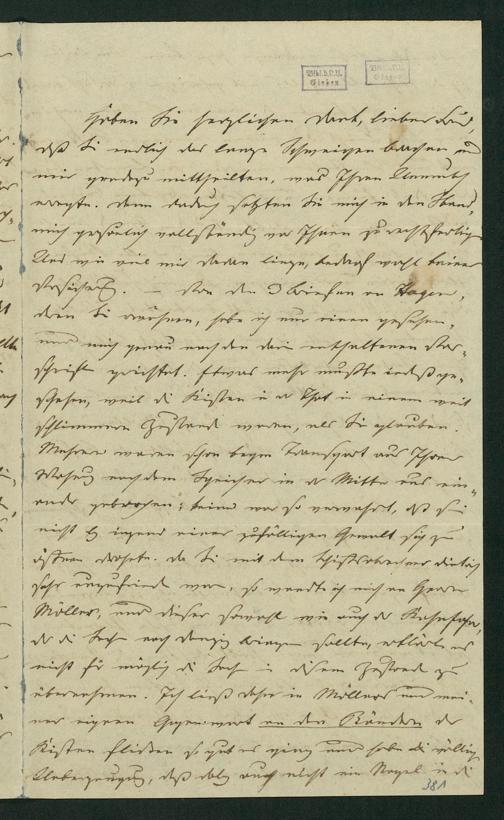 Bibl. d. L. U.
Giessen
Bibl. d. L. U.
Giessen
Haben Sie herzlichen Dank, lieber Freund,
daß Sie endlich das lange Schweigen brachen und
mir geradezu mittheilten, was Ihren Unmuth
erregte. Denn dadurch setzten Sie mich in den Stand,
mich persönlich vollständig vor Ihnen zu rechtfertigen.
Und wie viel mir daran liege, bedarf wohl keiner
Versicherung. — Von den 3 Briefen an Hagen,
deren Sie erwähnen, habe ich nur einen gesehen,
und mich genau nach den darin enthaltenen Vor-
schriften gerichtet. Etwas mehr mußte indeß ge-
schehen, weil die Kisten in der That in einem weit
schlimmeren Zustand waren, als Sie glauben.
Mehrere waren schon beym Transport aus Ihrer
Wohnung nach dem Speicher in der Mitte aus ein-
ander gebrochen; keine war so verwahrt, daß sie
nicht bey irgend einer zufälligen Gewalt sich zu
öffnen drohete. Da Sie mit dem
sehr unzufrieden waren, so wandte ich mich an Herrn
Möller, und dieser sowohl wie auch der
der die Sache nach Danzig bringen sollte, erklärte es
nicht für möglich die Sache in diesem Zustand zu
übernehmen. Ich ließ daher in Möllers und mei-
ner eigenen Gegenwart an den Rändern der
Kisten flicken so gut es ging und habe die völlige
Ueberzeugung, daß dabey auch nicht ein Nagel in die
381